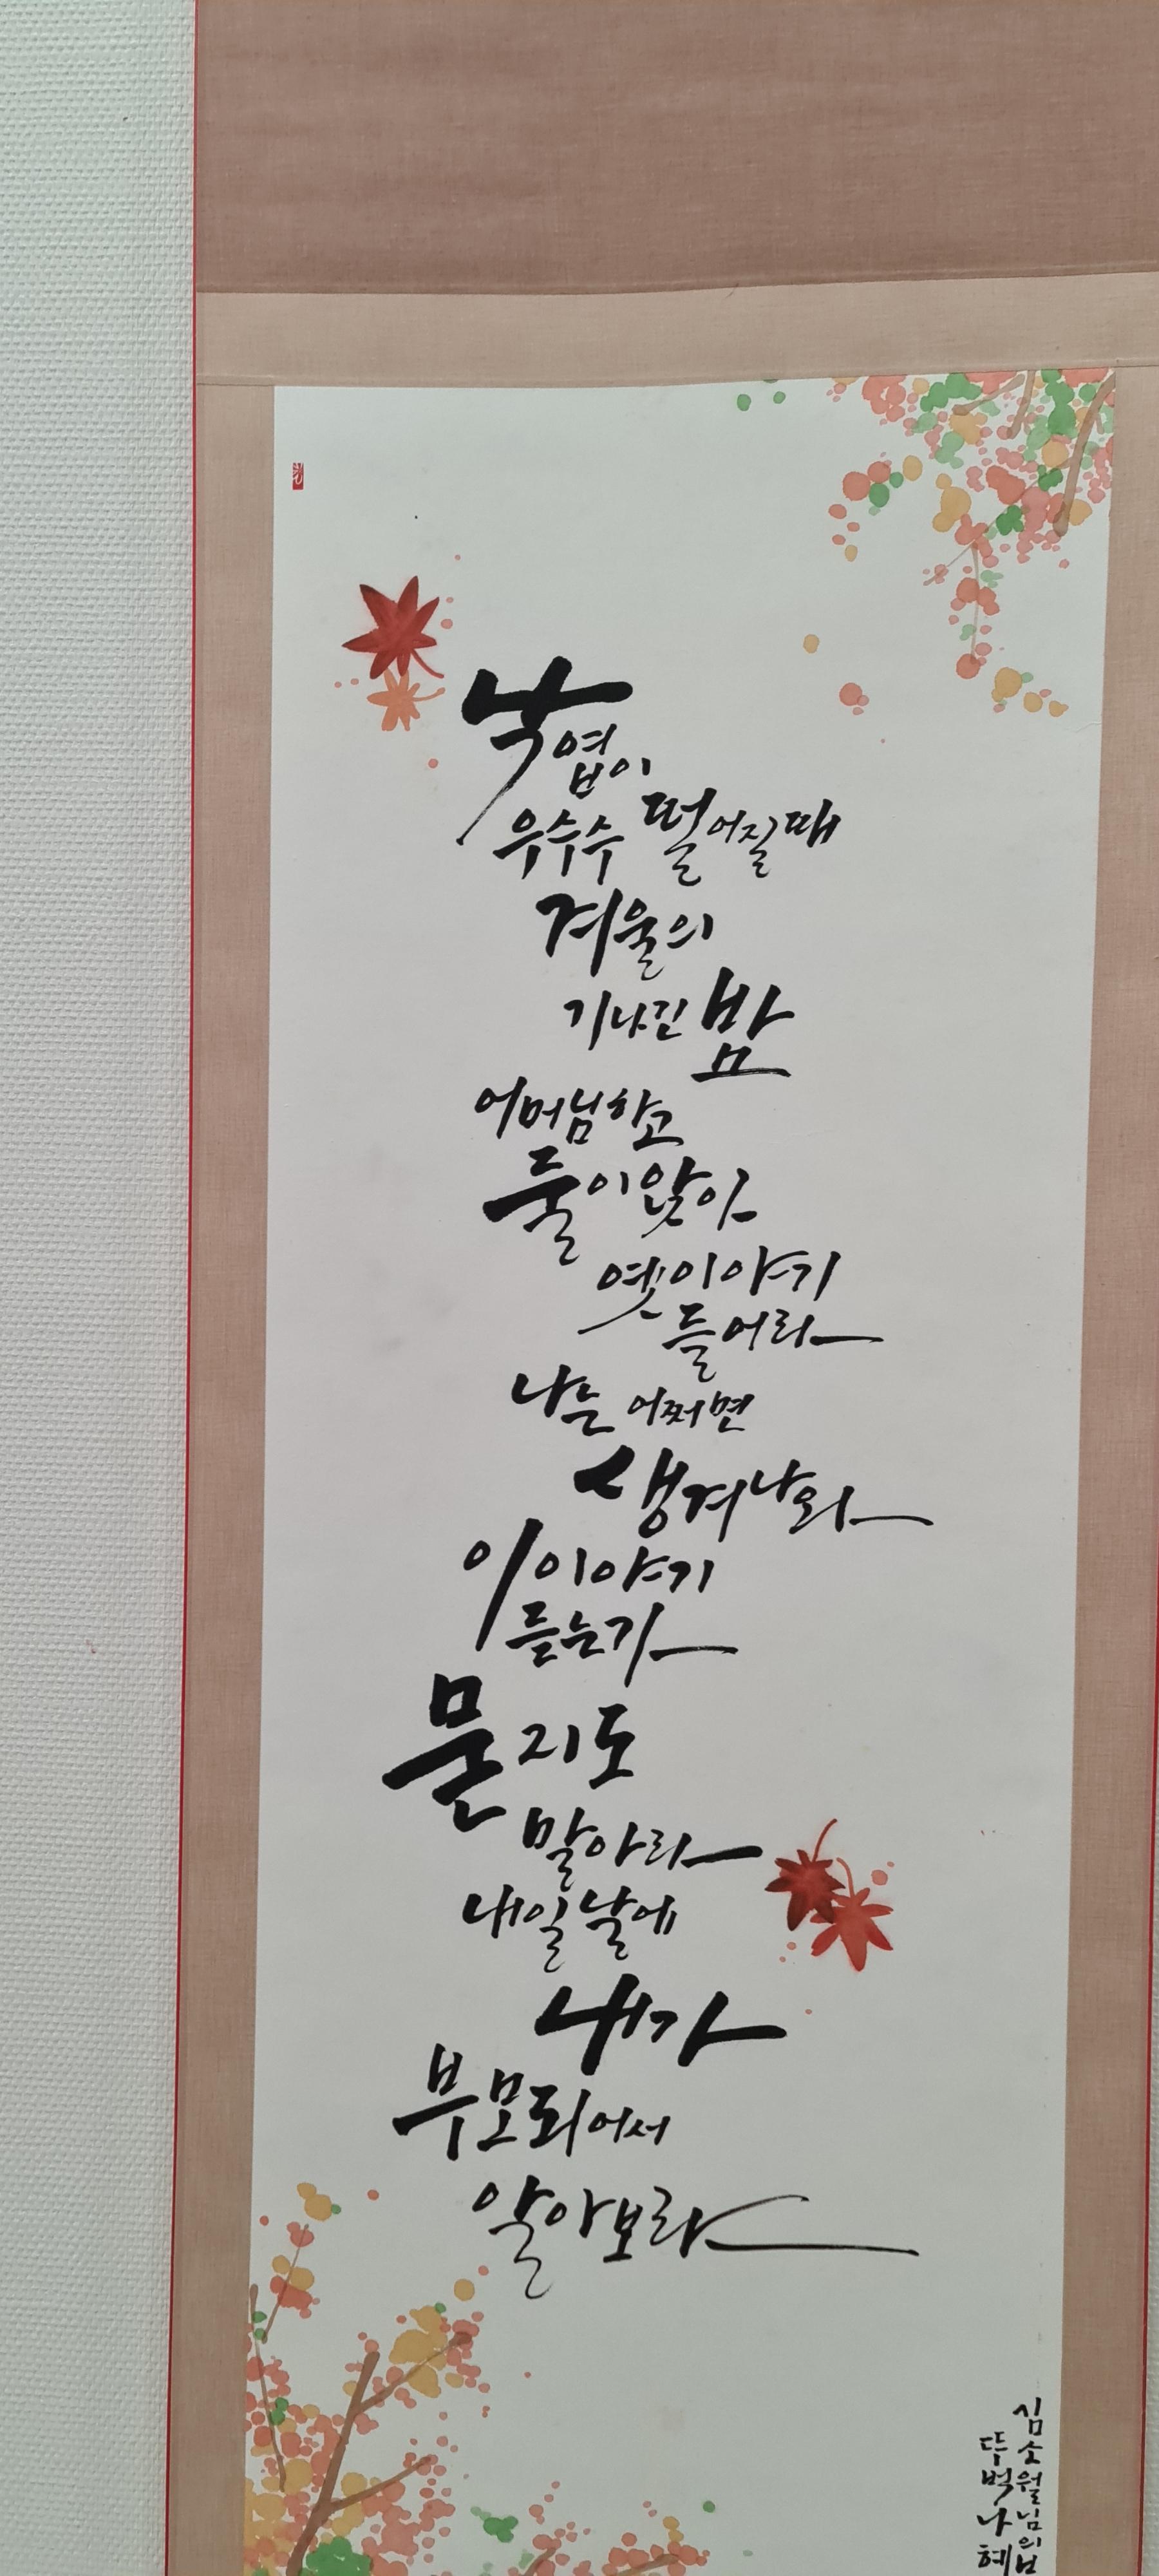 낙엽이
우수수 떨어질때
겨울의
기나긴 밤
어머님하고
둘이앉아
옛이야기
들어라
나는 어쩌면
생겨나와
이 이야기
듣는가
묻지도
말아라
내일날에
내가
부모되어서
알아보라
김소월님의
뚜벅나혜